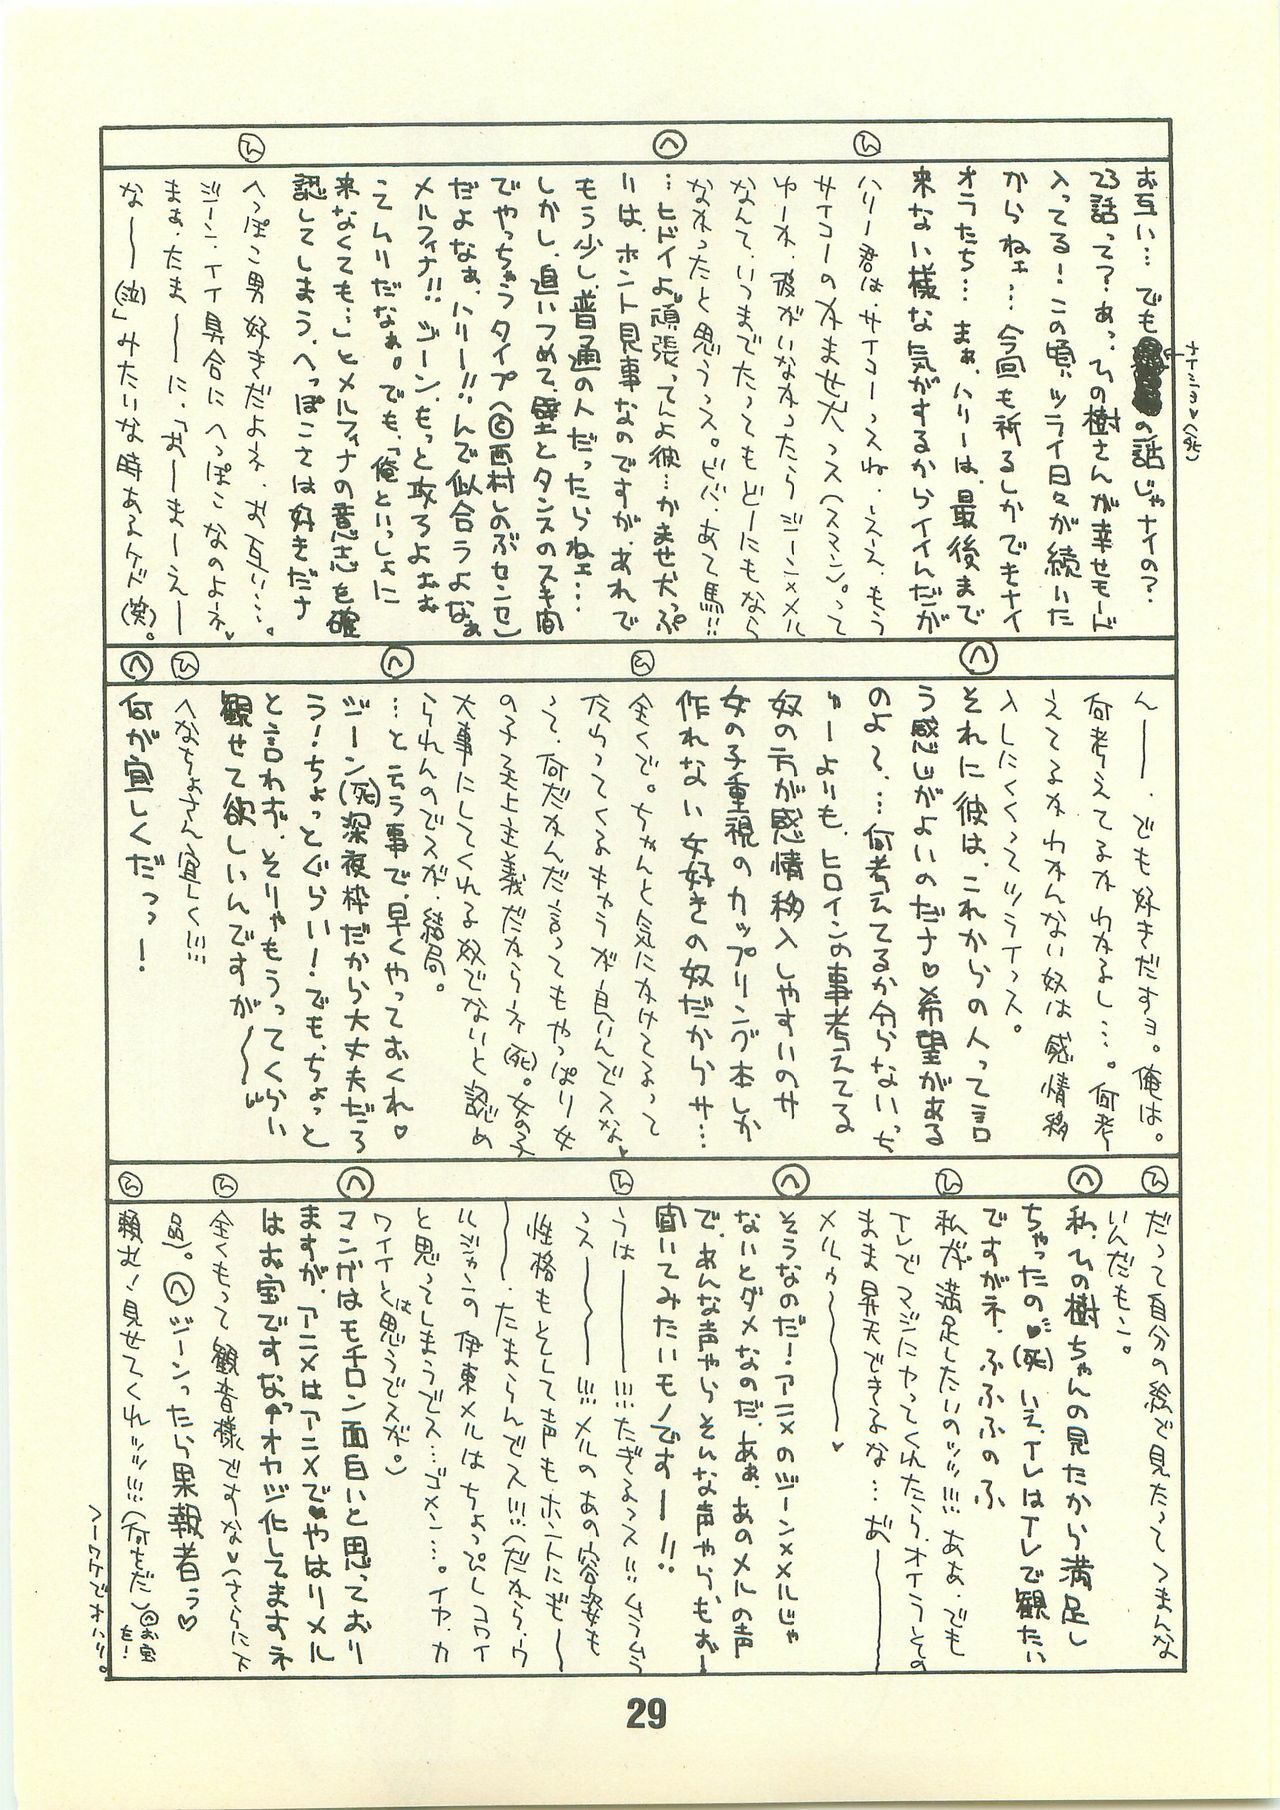 お互い…でも の話じゃナイの?
ナイショ♥(死)
23話って?あっ、ひの樹さんが幸せモード
入ってる!この頃ツライ日々が続いた
からねェ…今回も祈るしかできナイ
オラたち…まぁ、ハリーは、最後まで
来ない様な気がするからイイんだが
ひ
ハリー君は、サイコーっスね、ええ、もう
サイコーのかませ犬っス(スマン)。って
ゆーか、彼がいなかったらジーン×メル
なんて、いつまでたってもどーにもなら
なかったと思うっス。ビバ、あて馬!!
へ
…ヒドイよ。頑張ってんよ彼…かませ犬っぷ
りは、ホント見事なのですが、あれで
もう少し、普通の人だったらねェ…
しかし、追いつめて、壁とタンスのスキ間
でやっちゃうタイプ(©西村しのぶセンセ)
だよなぁ、ハリー!!んで似合うよなぁ
メルフィナ!!ジーン、もっと攻ろよぉぉ
ってムリだなぁ。でも、「俺といっしょに
来なくても…」とメルフィナの意志を確
認してしまう、へっぽこさは好きだナ
ひ
へっぽこ男好きだよネ、お互い…。
ジーン、イイ具合にへっぽこなのよネ。
まぁ、たま〜〜に、「おーまーえー
な〜〜(泣)」みたいな時あるケド(笑)。
ん〜〜、でも好きだすョ。俺は。
何考えてるかわかるし…。何考
えてるかわかんない奴は感情移
入しにくくってツライっス。
へ
それに彼は、これからの人って言
う感じがよいのだナ♥希望がある
のよ〜…何考えてるか分らないっち
ゅーよりも、ヒロインの事考えてる
奴の方が感情移入しやすいのサ
女の子重視のカップリング本しか
作れない女好きの奴だからサ…
ひ
全くで。ちゃんと気にかけてるって
分ってくるキャラが良いんでスな♥
って、何だかんだ言ってもやっぱり女
の子至上主義だからネ(死)。女の子
大事にしてくれる奴でないと認め
られんのでスが、結局。
へ
…と云う事で、早くやっておくれ♥
ジーン(死)深夜枠だから大丈夫だろ
う!ちょっとぐらい!でも、ちょっと
と言わず、そりゃもうってくらい
観せて欲しいんですが〜〜
ひ
へなちょさん宜しく!!!
へ
何が宜しくだっっー!
ひ
だって自分の絵で見たってつまんな
いんだもん。
へ
私、ひの樹ちゃんの見たから満足し
ちゃったの♥(死)いえ、アレはアレで観たい
ですがネ、ふふふのふ
ひ
私が満足したいのッッ!!!ああ、でも
アレでマジにやってくれたら、オイラその
まま昇天できるな…お〜〜
メルゥ〜〜〜♥
へ
そうなのだ!アニメのジーン×メルじゃ
ないとダメなのだ、あぁ、あのメルの声
で、あんな声やらそんな声やら、もおー
聞いてみたいモノですー!!
ひ
うは〜〜!!!たぎるっス!!!
っス〜〜!!!メルのあの容姿も
性格もそして声もホントにも〜
〜〜、たまらんでス!!!(だから、ウ
ルジャンの伊東メルはちょっぴしコワイ
と思ってしまうでス…ゴメン…。イヤ、カ
ワイイとは思うでスが。)
へ
マンガはモチロン面白いと思っており
ますが、アニメはアニメで♥やはりメル
はお宝ですな♥オヤジ化してますネ
ひ
全くもって観音様ですな♥(さらに下
品)。へジーンったら果報者っ♥
ひ
頼む!見せてくれッッ!!!(何をだ)@お宝
を!
ヘーワケでオハリ。
29